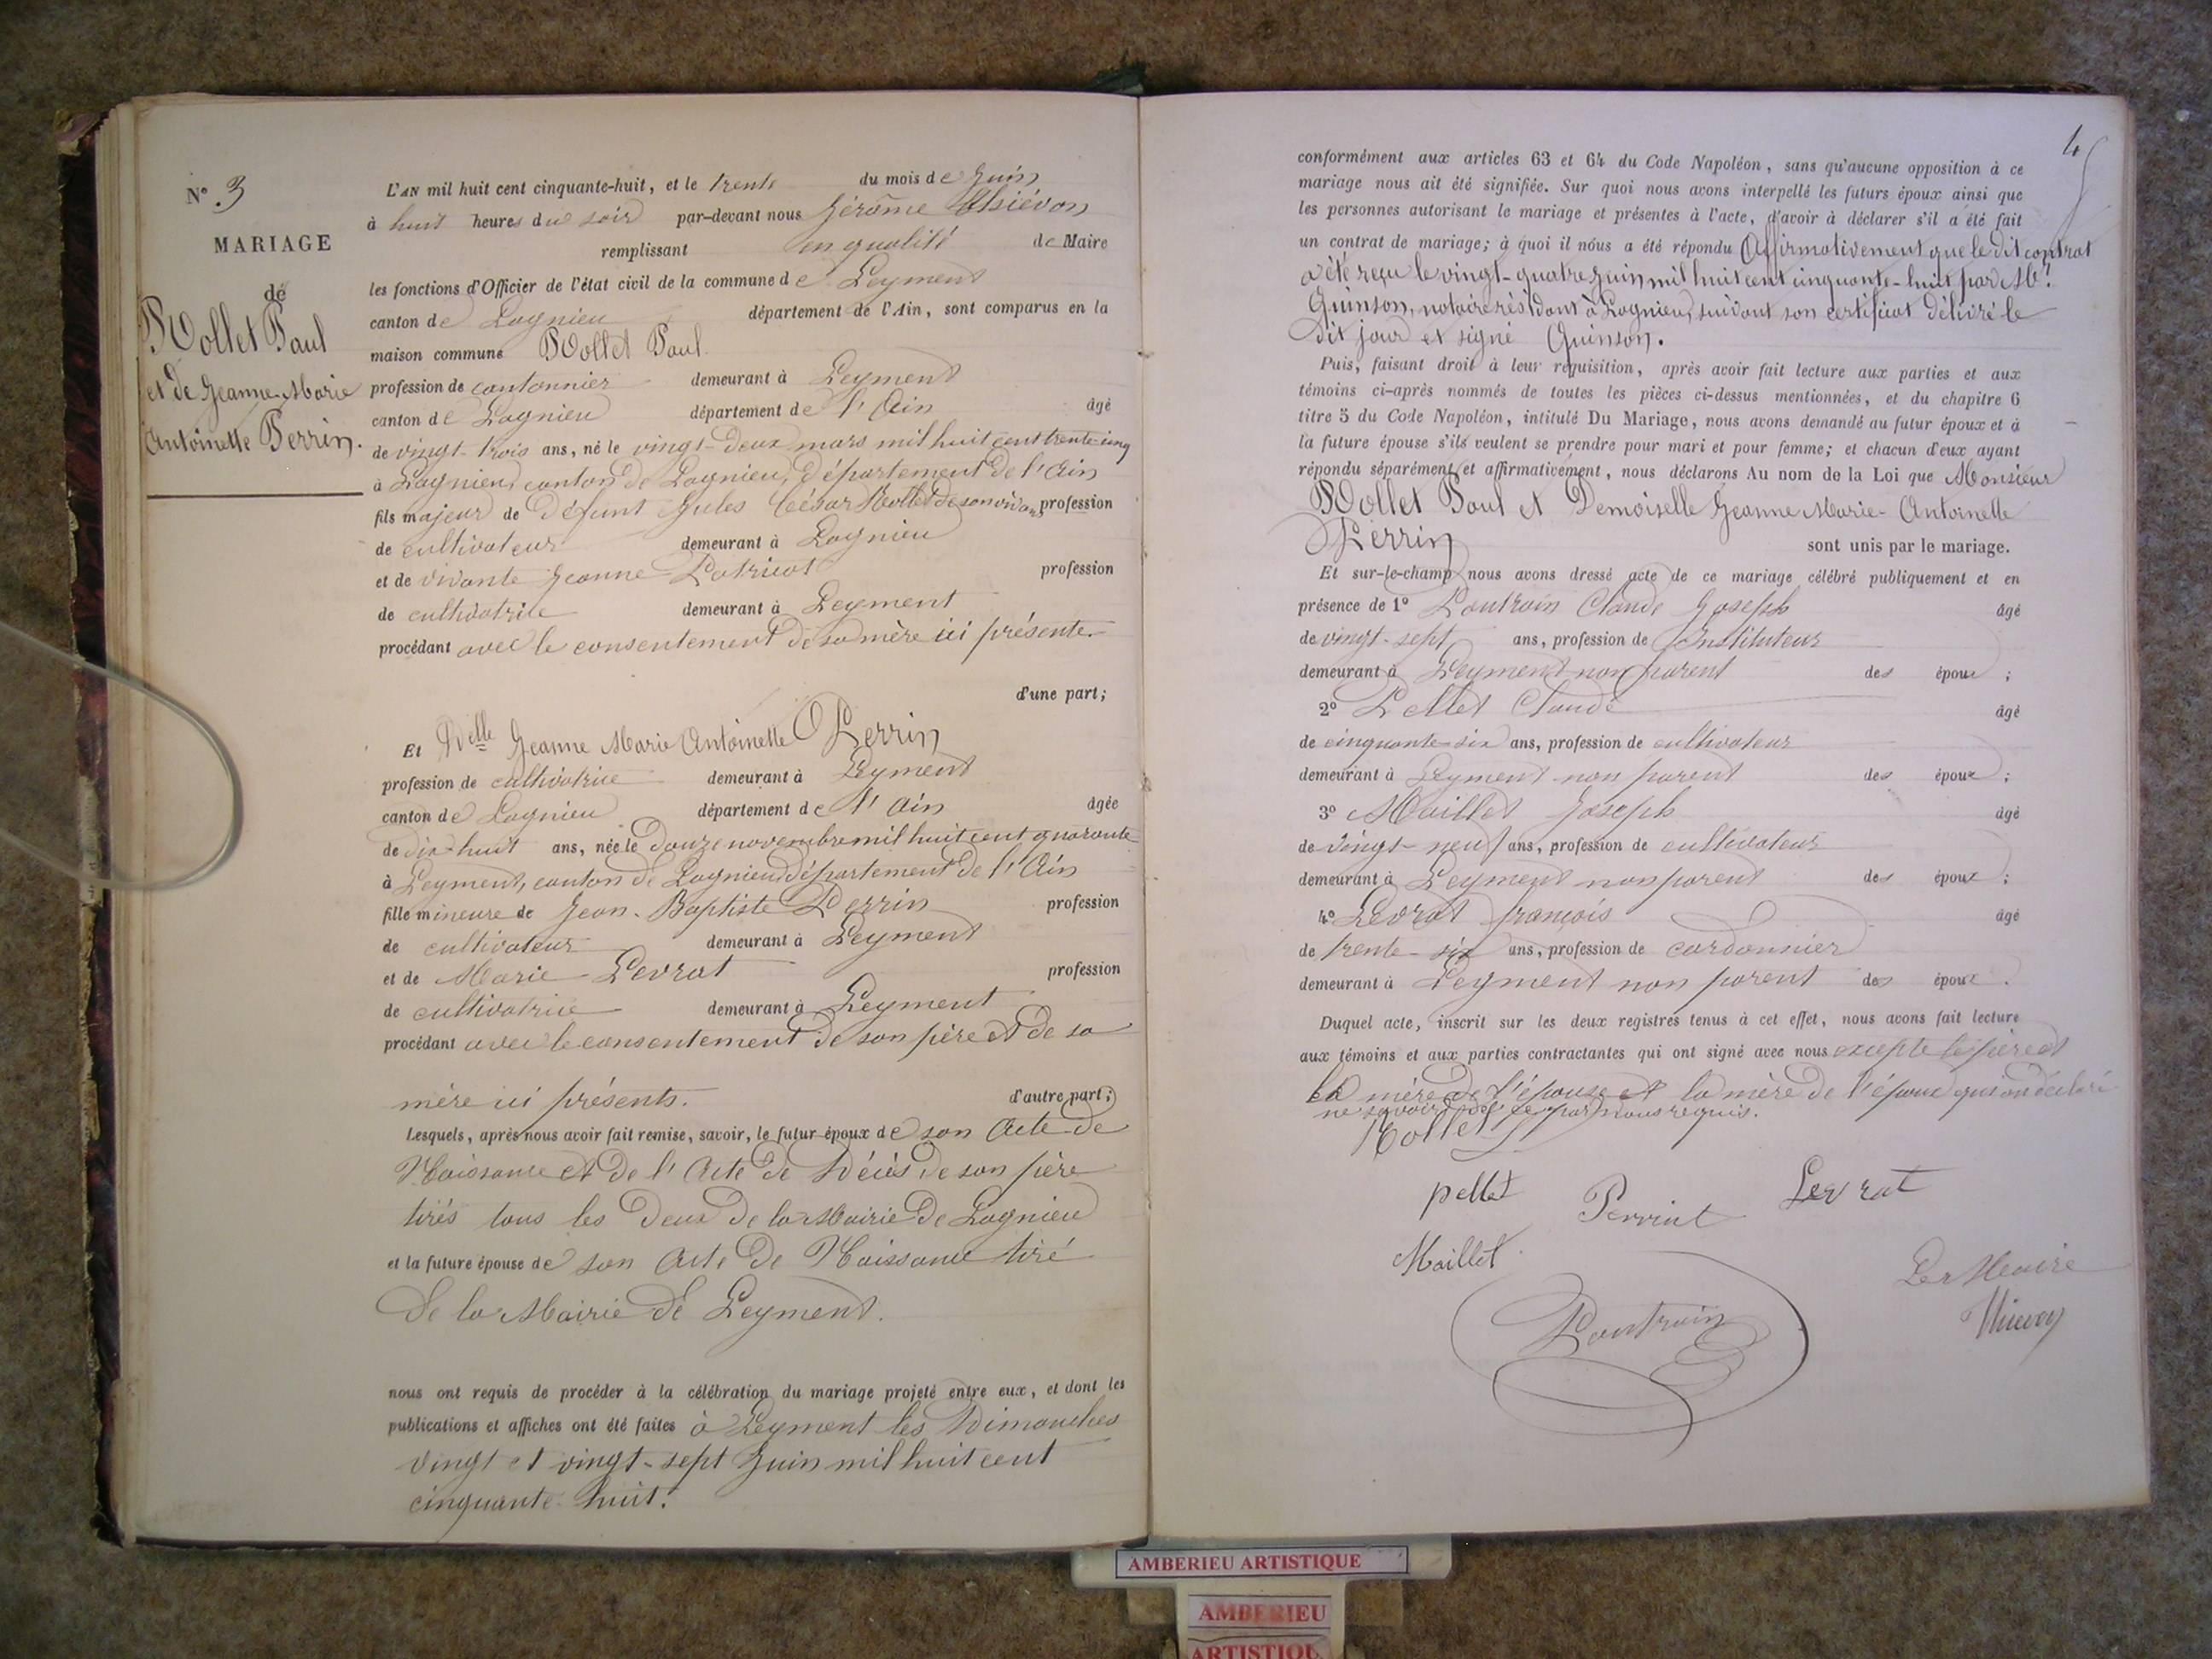 N° 3
MARIAGE
de
Rollet Paul
et de Jeanne Marie
Antoinette Perrin.
L'AN mil huit cent cinquante-huit, et le trente du mois de Juin
à huit heures du soir par-devant nous Jérôme Thiévon
remplissant en qualité de Maire
les fonctions d'Officier de l'état civil de la commune de Leyment
canton de Lagnieu département de l'Ain, sont comparus en la
maison commune Rollet Paul
profession de cantonnier demeurant à Leyment
canton de Lagnieu département de l'Ain âgé
de vingt-trois ans, né le vingt-deux mars mil huit cent trente-cinq
à Lagnieu, canton de Lagnieu, département de l'Ain
fils majeur de défunt Jules César Rollet de son vivant profession
de cultivateur demeurant à Lagnieu
et de vivante Jeanne Patricot profession
de cultivatrice demeurant à Leyment
procédant avec le consentement de sa mère ici présente.
d'une part;
Et Delle Jeanne Marie Antoinette Perrin
profession de cultivatrice demeurant à Leyment
canton de Lagnieu département de l'Ain âgée
de dix-huit ans, née le douze novembre mil huit cent quarante
à Leyment, canton de Lagnieu, département de l'Ain
fille mineure de Jean-Baptiste Perrin profession
de cultivateur demeurant à Leyment
et de Marie Levrat profession
de cultivatrice demeurant à Leyment
procédant avec le consentement de son père et de sa
mère ici présents. d'autre part;
Lesquels, après nous avoir fait remise, savoir, le futur époux de son Acte de
Naissance et de l'Acte de Décès de son père
tirés tous les deux de la Mairie de Lagnieu
et la future épouse de son Acte de Naissance tiré
de la Mairie de Leyment.
nous ont requis de procéder à la célébration du mariage projeté entre eux, et dont les
publications et affiches ont été faites à Leyment les Dimanches
vingt et vingt-sept Juin mil huit cent
cinquante-huit.
4
conformément aux articles 63 et 64 du Code Napoléon, sans qu'aucune opposition à ce
mariage nous ait été signifiée. Sur quoi nous avons interpellé les futurs époux ainsi que
les personnes autorisant le mariage et présentes à l'acte, d'avoir à déclarer s'il a été fait
un contrat de mariage; à quoi il nous a été répondu Affirmativement que le dit contrat
a été reçu le vingt-quatre juin mil huit cent cinquante-huit par Me
Quinson, notaire résidant à Lagnieu, suivant son certificat délivré le
dit jour et signé Quinson.
Puis, faisant droit à leur réquisition, après avoir fait lecture aux parties et aux
témoins ci-après nommés de toutes les pièces ci-dessus mentionnées, et du chapitre 6
titre 5 du Code Napoléon, intitulé Du Mariage, nous avons demandé au futur époux et à
la future épouse s'ils veulent se prendre pour mari et pour femme; et chacun d'eux ayant
répondu séparément et affirmativement, nous déclarons Au nom de la Loi que Monsieur
Rollet Paul et Demoiselle Jeanne Marie-Antoinette
Perrin sont unis par le mariage.
Et sur-le-champ nous avons dressé acte de ce mariage célébré publiquement et en
présence de 1° Pautrain Claude Joseph âgé
de vingt-sept ans, profession de Instituteur
demeurant à Leyment non parent des époux ;
2° Pellet Claude âgé
de cinquante-six ans, profession de cultivateur
demeurant à Leyment non parent des époux ;
3° Maillet Joseph âgé
de vingt-neuf ans, profession de cultivateur
demeurant à Leyment non parent des époux ;
4° Levrat françois âgé
de trente-six ans, profession de cordonnier
demeurant à Leyment non parent des époux .
Duquel acte, inscrit sur les deux registres tenus à cet effet, nous avons fait lecture
aux témoins et aux parties contractantes qui ont signé avec nous excepté le père et
la mère de l'épouse et la mère de l'époux qui ont déclaré
ne savoir par nous requis.
Rollet
pellet Perrin Levrat
Maillet
Le Maire
Pautrain
Thievon
AMBERIEU ARTISTIQUE
AMBERIEU
ARTISTIQU